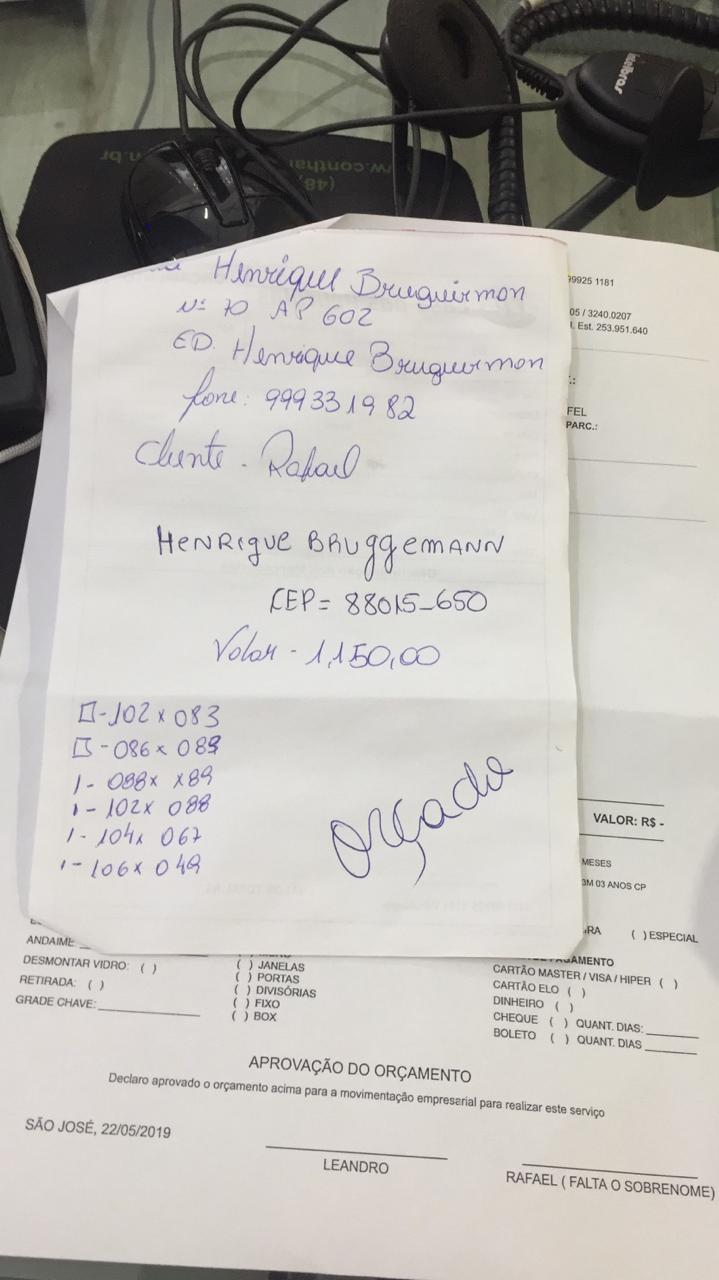 intelbras
Henrique Bruguirmon
Nº 70 AP 602
ED. Henrique Bruguirmon
fone: 999331982
Cliente - Rafael
HENRIQUE BRUGGEMANN
CEP = 88015-650
Valor - 1,150,00
102 x 083
086 x 089
1 - 088 x x89
1 - 102 x 088
1 - 104 x 067
1 - 106 x 049
Orçado
99925 1181
05 / 3240.0207
I. Est. 253.951.640
FEL
PARC.:
VALOR: R$ -
MESES
03 ANOS CP
RA ( ) ESPECIAL
ANDAIME:
DESMONTAR VIDRO: ( )
RETIRADA: ( )
GRADE CHAVE:
( ) JANELAS
( ) PORTAS
( ) DIVISÓRIAS
( ) FIXO
( ) BOX
AGAMENTO
CARTÃO MASTER / VISA / HIPER ( )
CARTÃO ELO ( )
DINHEIRO ( )
CHEQUE ( ) QUANT. DIAS:
BOLETO ( ) QUANT. DIAS
APROVAÇÃO DO ORÇAMENTO
Declaro aprovado o orçamento acima para a movimentação empresarial para realizar este serviço
SÃO JOSÉ, 22/05/2019
LEANDRO
RAFAEL ( FALTA O SOBRENOME)